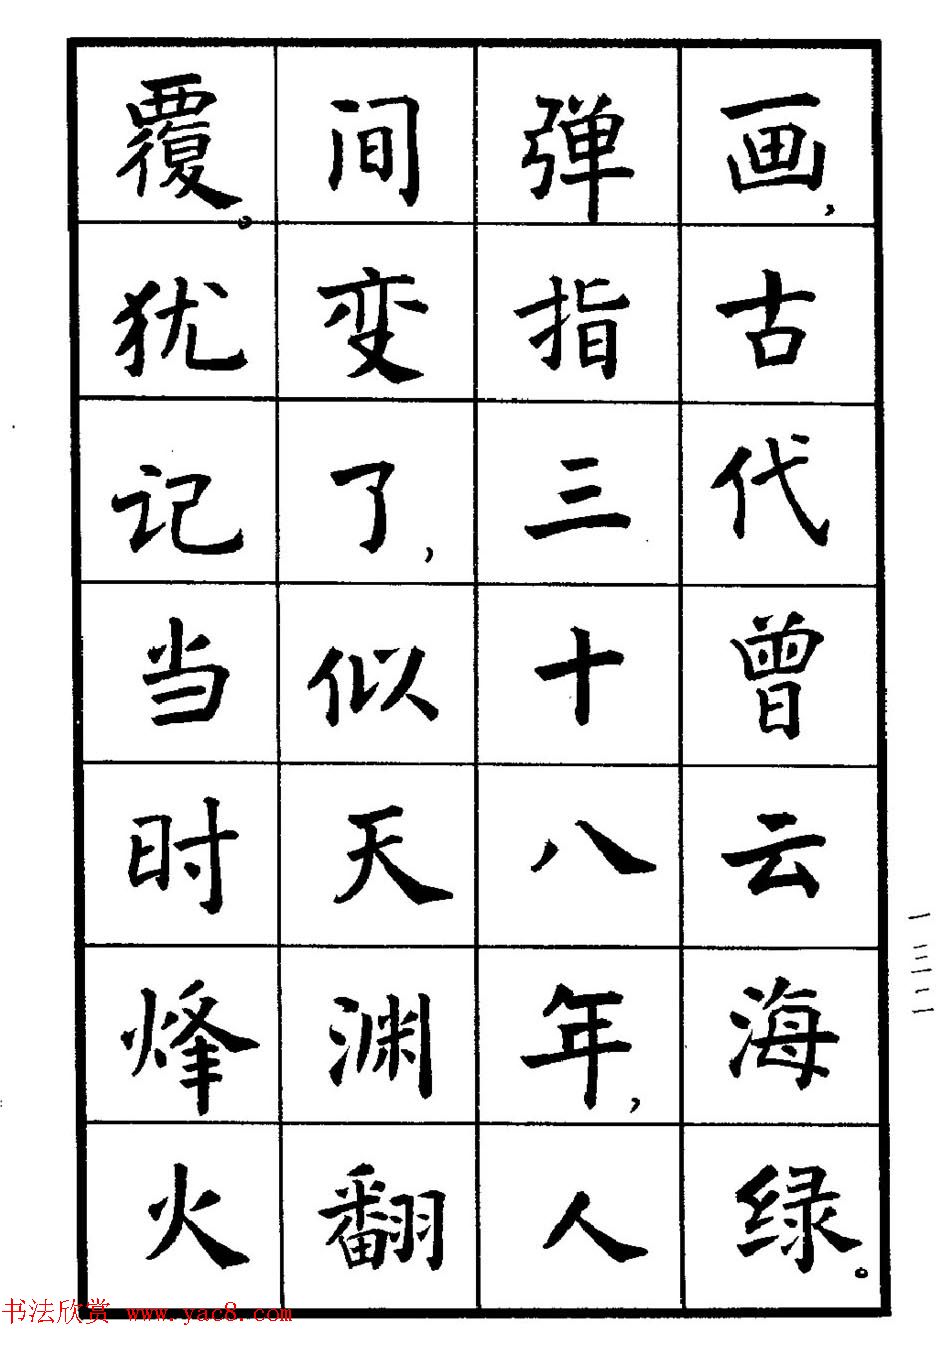 画，古代曾云海绿。
弹指三十八年，人
间变了，似天渊翻
覆。犹记当时烽火
书法欣赏 www.yac8.com